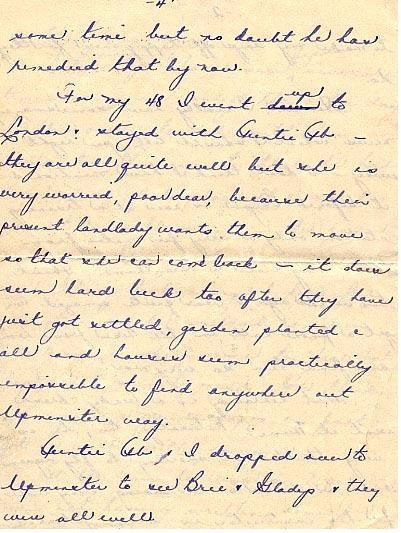 -4-
some time but no doubt he has
remedied that by now.
For my 48 I went down up to
London & stayed with Auntie Ab -
they are all quite well but she is
very worried, poor dear, because their
present landlady wants them to move
so that she can come back - it does
seem hard luck too after they have
just got settled, garden planted &
all and houses seem practically
impossible to find anywhere out
Upminster way.
Auntie Ab & I dropped over to
Upminster to see Brie & Gladys & they
were all well.